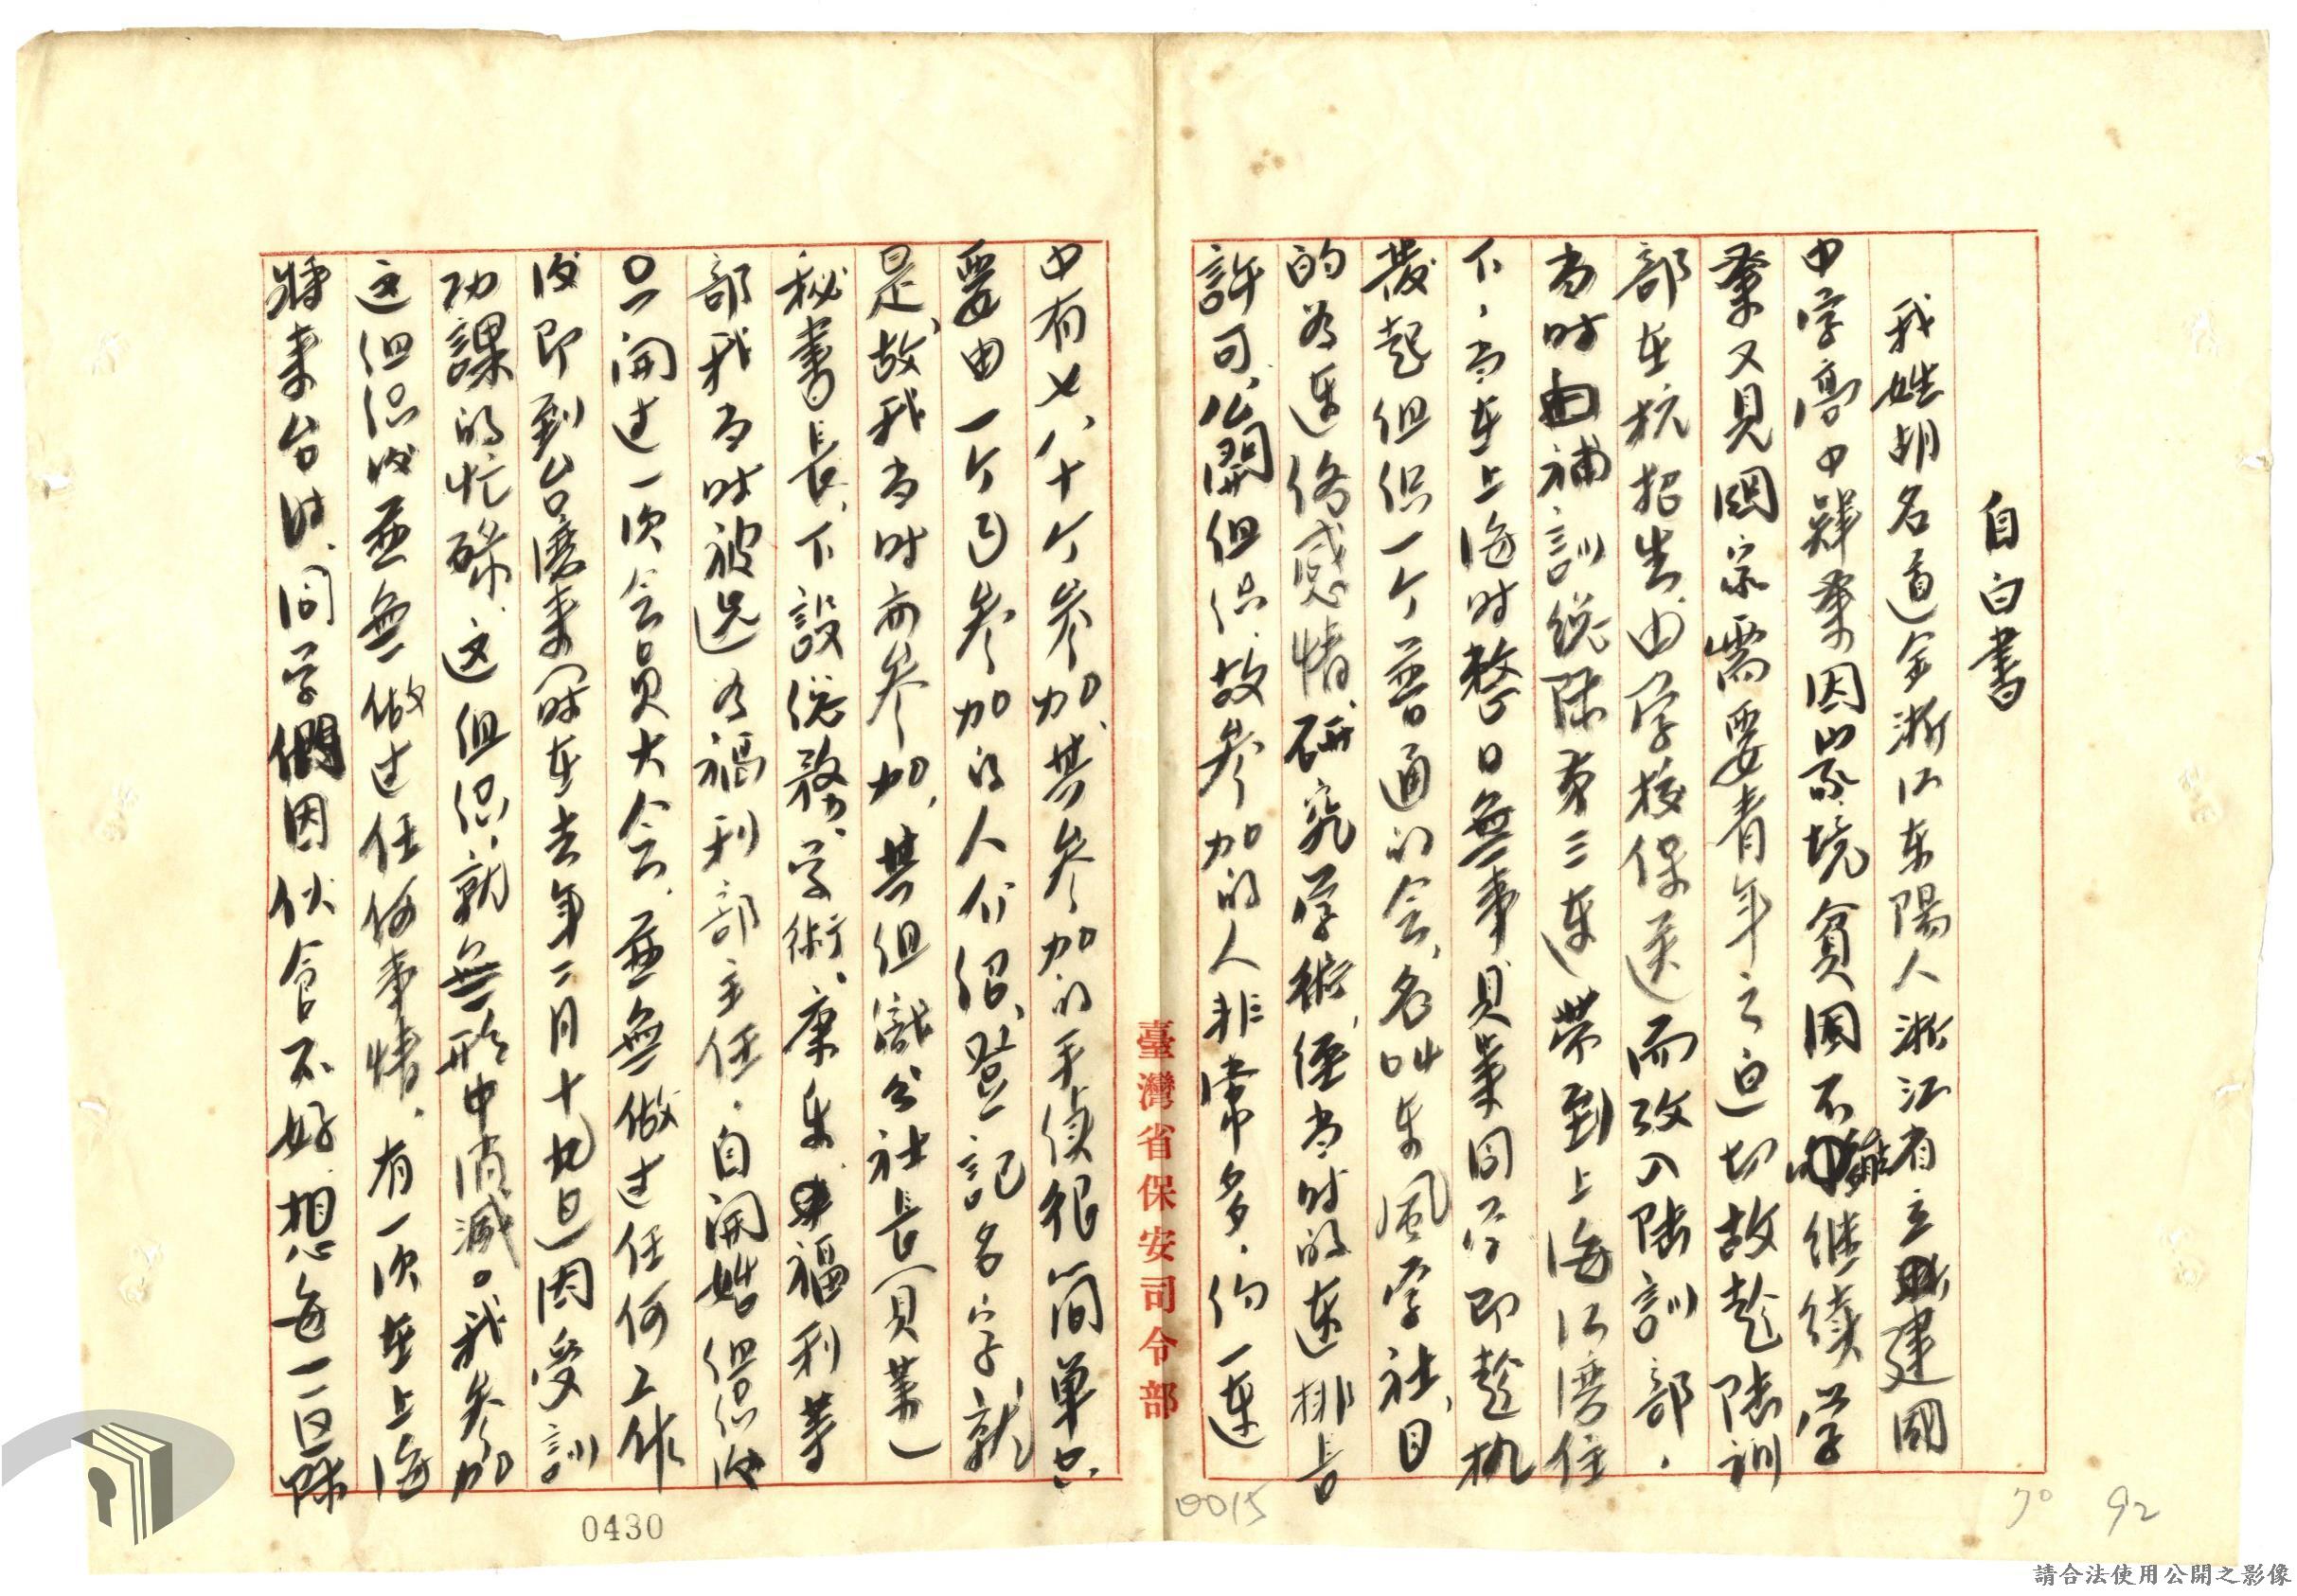 自白書
我姓胡名道金浙江东陽人浙江省立建國
中学高中肄業因家境貧困不能继续学
業又見國家需要青年之迫切故趁陆訓
部在杭招生由学校保送而改入陆訓部、
当时由補訓総隊第三連帶到上海江湾住
下、当在上海时整日無事貝萊同学即趁机
發起组织一个普通的会、名叫东風学社、目
的为連络感情、研究学術、经当时的連排長
許可、公開组织、故参加的人非常多、约一連
中有七、八十个参加、其参加的手續很简单只
要由一个已参加的人介绍、登記名字就
是、故我当时亦参加、其组織分社長(貝萊)
秘書長、下設総務、学術、康乐、福利等
部我当时被选为福利部主任、自開始组织後
只開过一次会員大会、並無做过任何工作
後即到台湾来(时在去年二月十九日)因受訓
功課的忙碌、这组织就無形中消滅。我参加
这组织後並無做过任何事情、有一次在上海
將來台时、同学們因伙食不好、想每一区隊
臺灣省保安司令部
0430
0015
70
92
請合法使用公開之影像